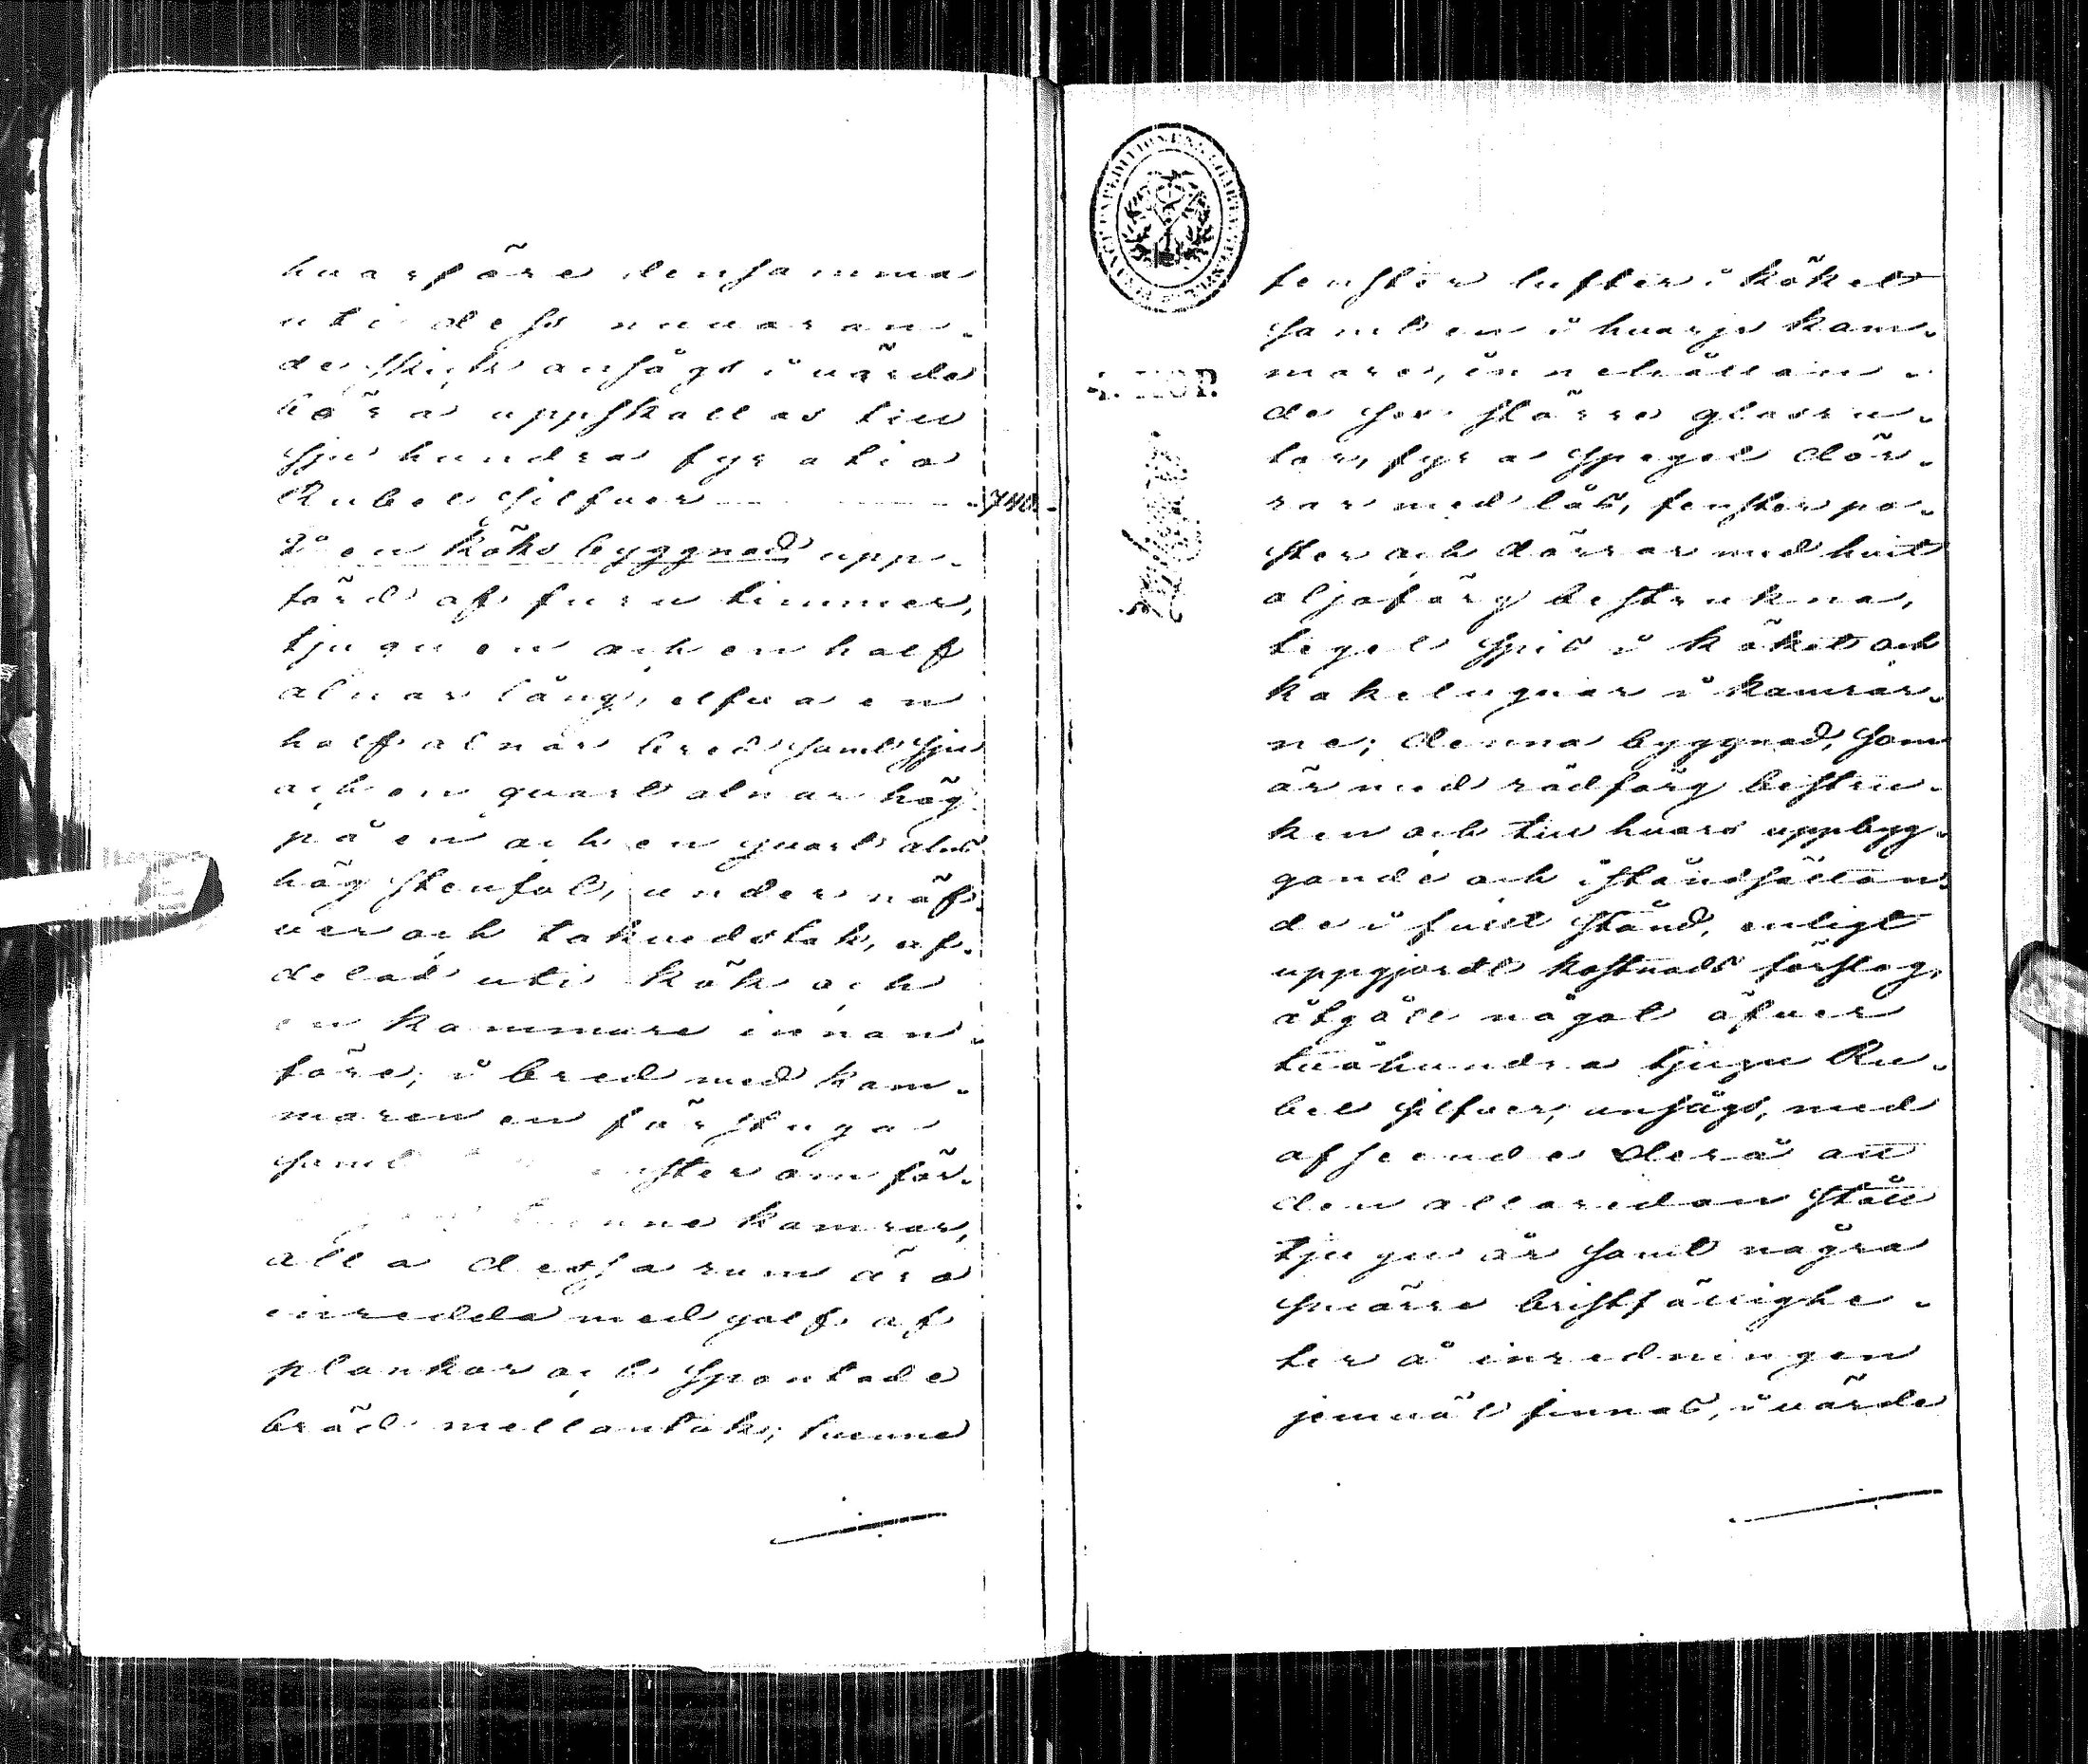 hvarföre densamma
uti dess nuvaran-
de skick ansågs i värde
böra uppskattas till
sju hundra fyratio
Rubel silfver - - - 740.-
2o en köksbyggnad upp-
förd af furu timmer,
tjugu en och en half
alnar lång, elfva en
half alnar bred samt sju
och en qvart alnar hög
på en och en qvart alns
hög stenfot, under näf-
ver och takvedstak, af-
delad uti kök och
en kammare innan-
före; i bred med kam-
maren en förstuga
samt om för-
tvenne kamrar,
alla dessa rum äro
inredda med golf af
plankor och spontade
bräd mellantak; tvenne
fenster lufter i köket
samt en i hvarje kam-
mare, innehållan-
de sex större glasru-
tor, fyra spegel dör-
rar med lås, fenster po-
ster och dörrar med hvit
oljefärg bestrukna,
tegel spis i köket och
kakelugnar i kamrar-
ne; denna byggnad, som
är med rödfärg bestru-
ken och till hvars uppbyg-
gande och iståndsättan-
de i fullt stånd, enligt
uppgjordt kostnads förslag,
åtgått något öfver
tvåhundra tjugu Ru-
bel silfver, ansågs, med
afseende derå att
den allaredan stått
tjugu år samt några
smärre bristfällighe-
ter å inredningen
jemväl finnas, i värde